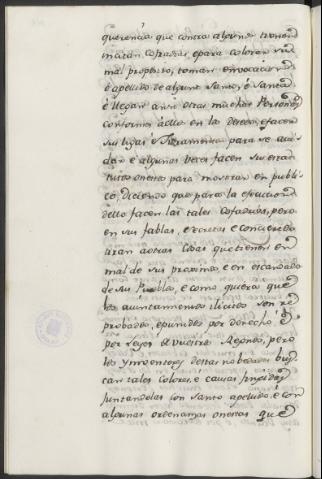 querencia que contra algunos tienen
incitan Cofradias, e para colorar su
mal proposito, toman invocacion
e apellido de algun Santo, e Santa
e llegan ansi otras muchas Personas
conformes a ellos en la deseos, e facen
sus ligas e Juramentos para se aiu-
dar e algunas veces facen sus estat-
tutos onestos para mostrar en publi-
co, diciendo que para la execucion
dello facen las tales Cofadrias, pero
en sus fablas, e secretas e concierto
tiran a otras Cosas que tienden en
mal de sus proximos, e en escandalo
de sus Pueblos, e como quiera que
los aiuntamientos ilicitos son re
probados, e punidos por derecho, e
por Leyes de vuestros Reynos, pero
los Ynventores destas nobedades bus
can tales Colores, e causas fingidas
juntandolas con Santo apellido, e con
algunas ordenanzas onestas que